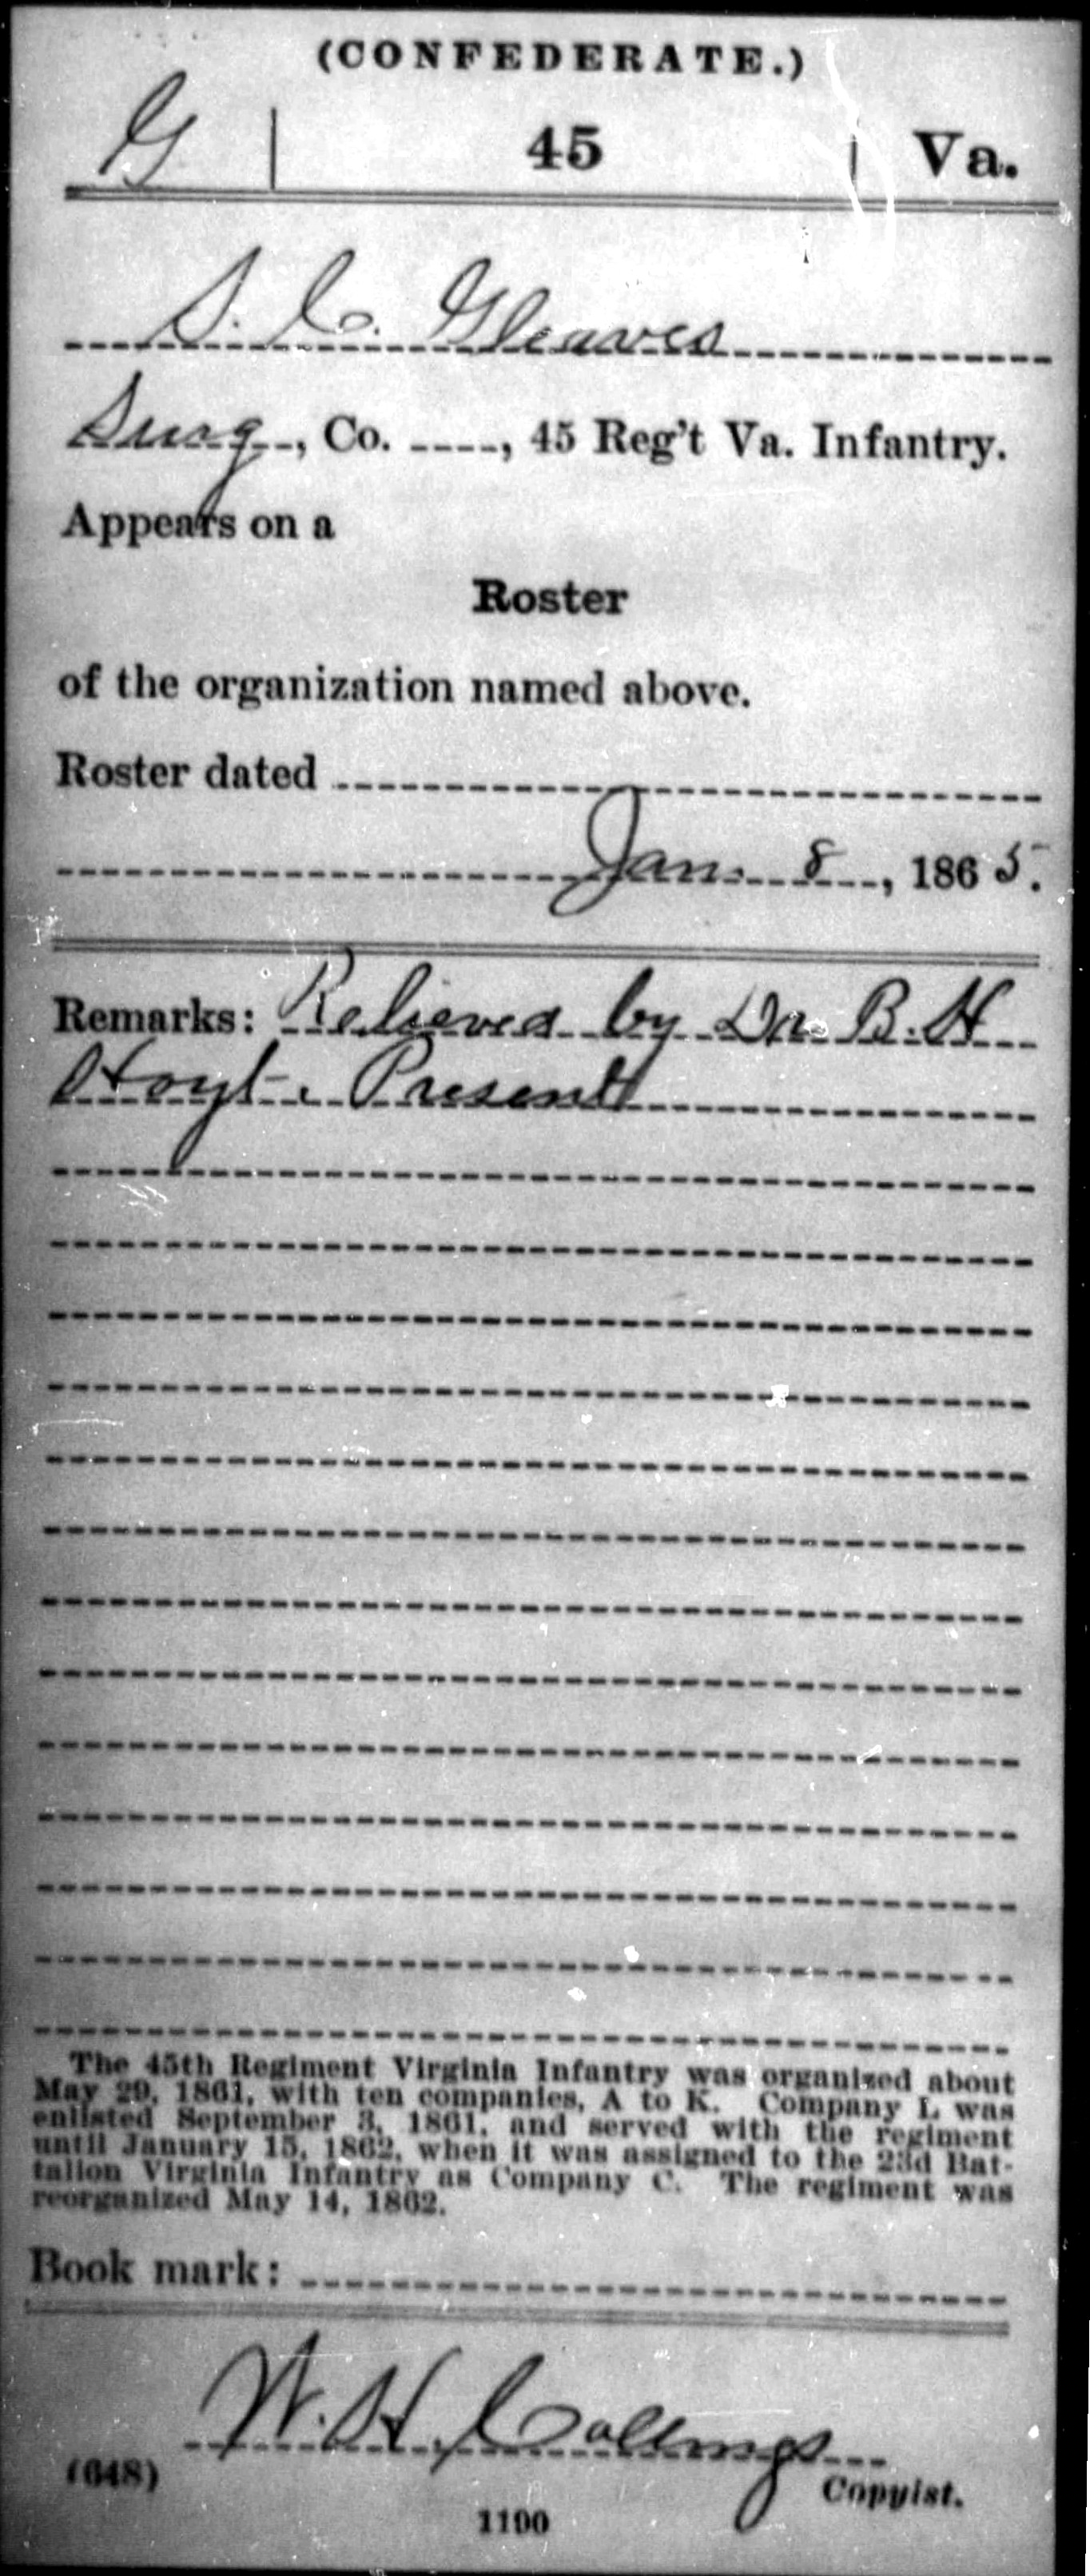 (CONFEDERATE.)
G | 45 | Va.
S. C. Gleaves
Surg, Co. , 45 Reg't Va. Infantry.
Appears on a
Roster
of the organization named above.
Roster dated
Jan. 8, 1865.
Remarks: Relieved by Dr. B. H
Hoyt. Present
The 45th Regiment Virginia Infantry was organized about
May 29, 1861, with ten companies, A to K. Company L was
enlisted September 3, 1861, and served with the regiment
until January 15, 1862, when it was assigned to the 23d Bat-
talion Virginia Infantry as Company C. The regiment was
reorganized May 14, 1862.
Book mark:
W. H. Collings
(648)
Copyist.
1100